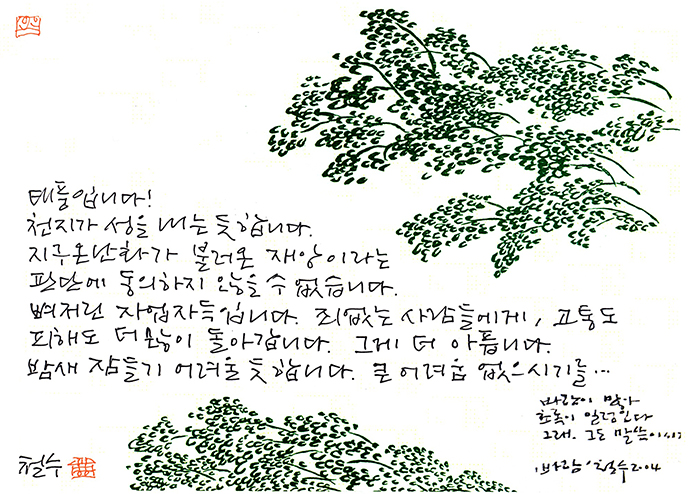 태풍입니다!
천지가 성을 내는 듯합니다.
지구온난화가 불러온 재앙이라는
판단에 동의하지 않을 수 없습니다.
벼저린 자업자득입니다. 죄없는 사람들에게, 고통도
피해도 더 많이 돌아갑니다. 그게 더 아픕니다.
밤새 잠들기 어려울 듯합니다. 큰 어려움 없으시기를...
바람이 많아
초록이 일렁인다
그래. 그도 말씀이시니
철수
'바람' 철수 2004